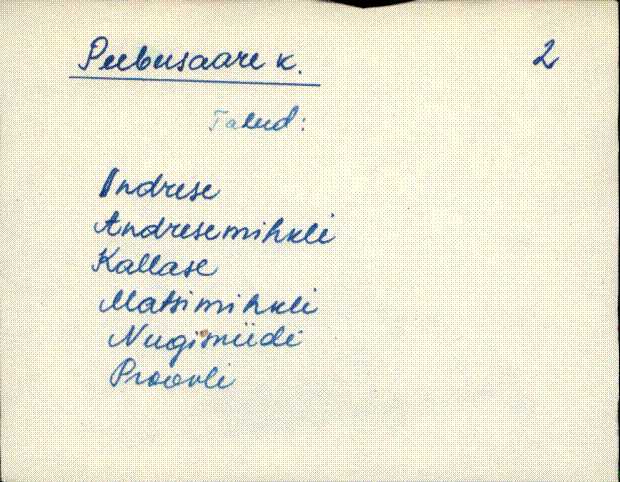 Peebusaare k. 2
Talud:
Andrese
Andresemihkli
Kallase
Matsimihkli
Nugismüdi
Proovli